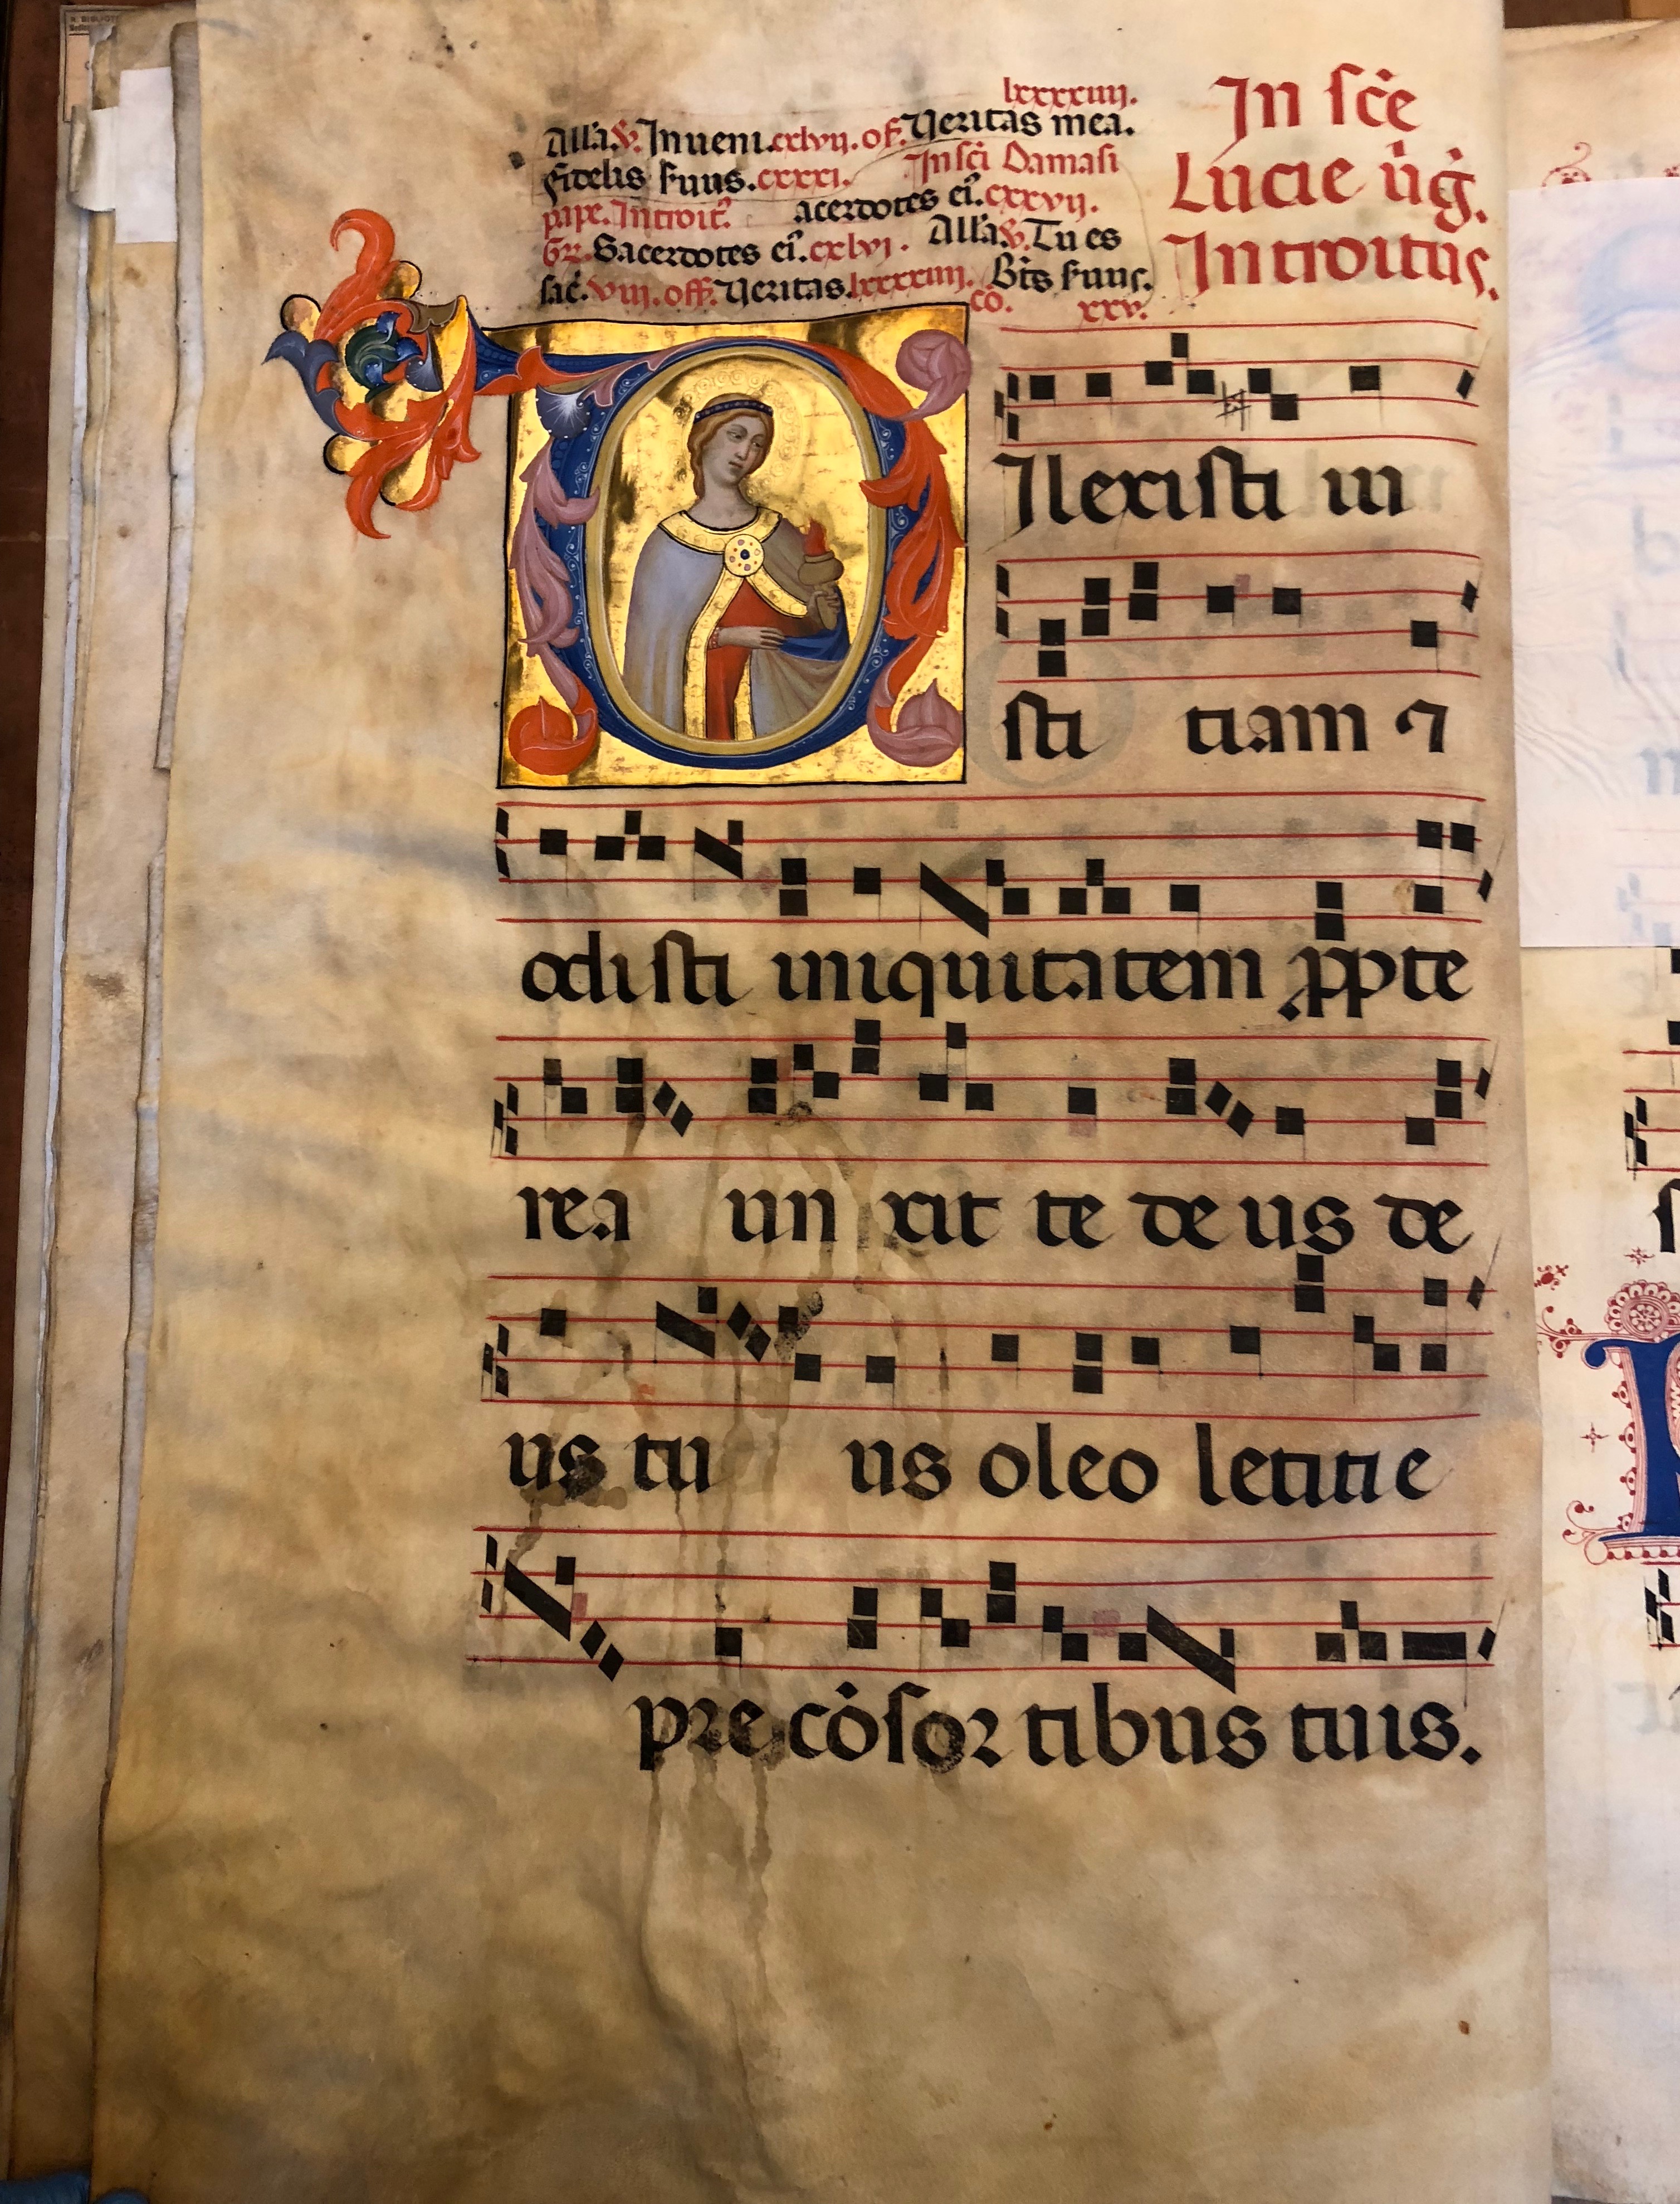 lxxxxiiij.
Alľa. ℣. Inueni. cxlvij. of. Ueritas mea.
fidelis seruus. cxxxi. In sc̄i Damasi
pape. Introit᷒. acerdotes ei᷒. cxxvij.
Gr̄. Sacerdotes ei᷒. cxlvi. Alľa. ℣. Tu es
sac̄. viij. off. Ueritas. lxxxxiiij. Bt̄s seruus.
co. xxv.
In sc̄e
Lucie ūḡ.
Introitus.
Ilexisti iu
sti tiam ⁊
odisti iniquitatem ꝓpte
rea un xit te de us de
us tu us oleo letitie
pre cōsor tibus tuis.